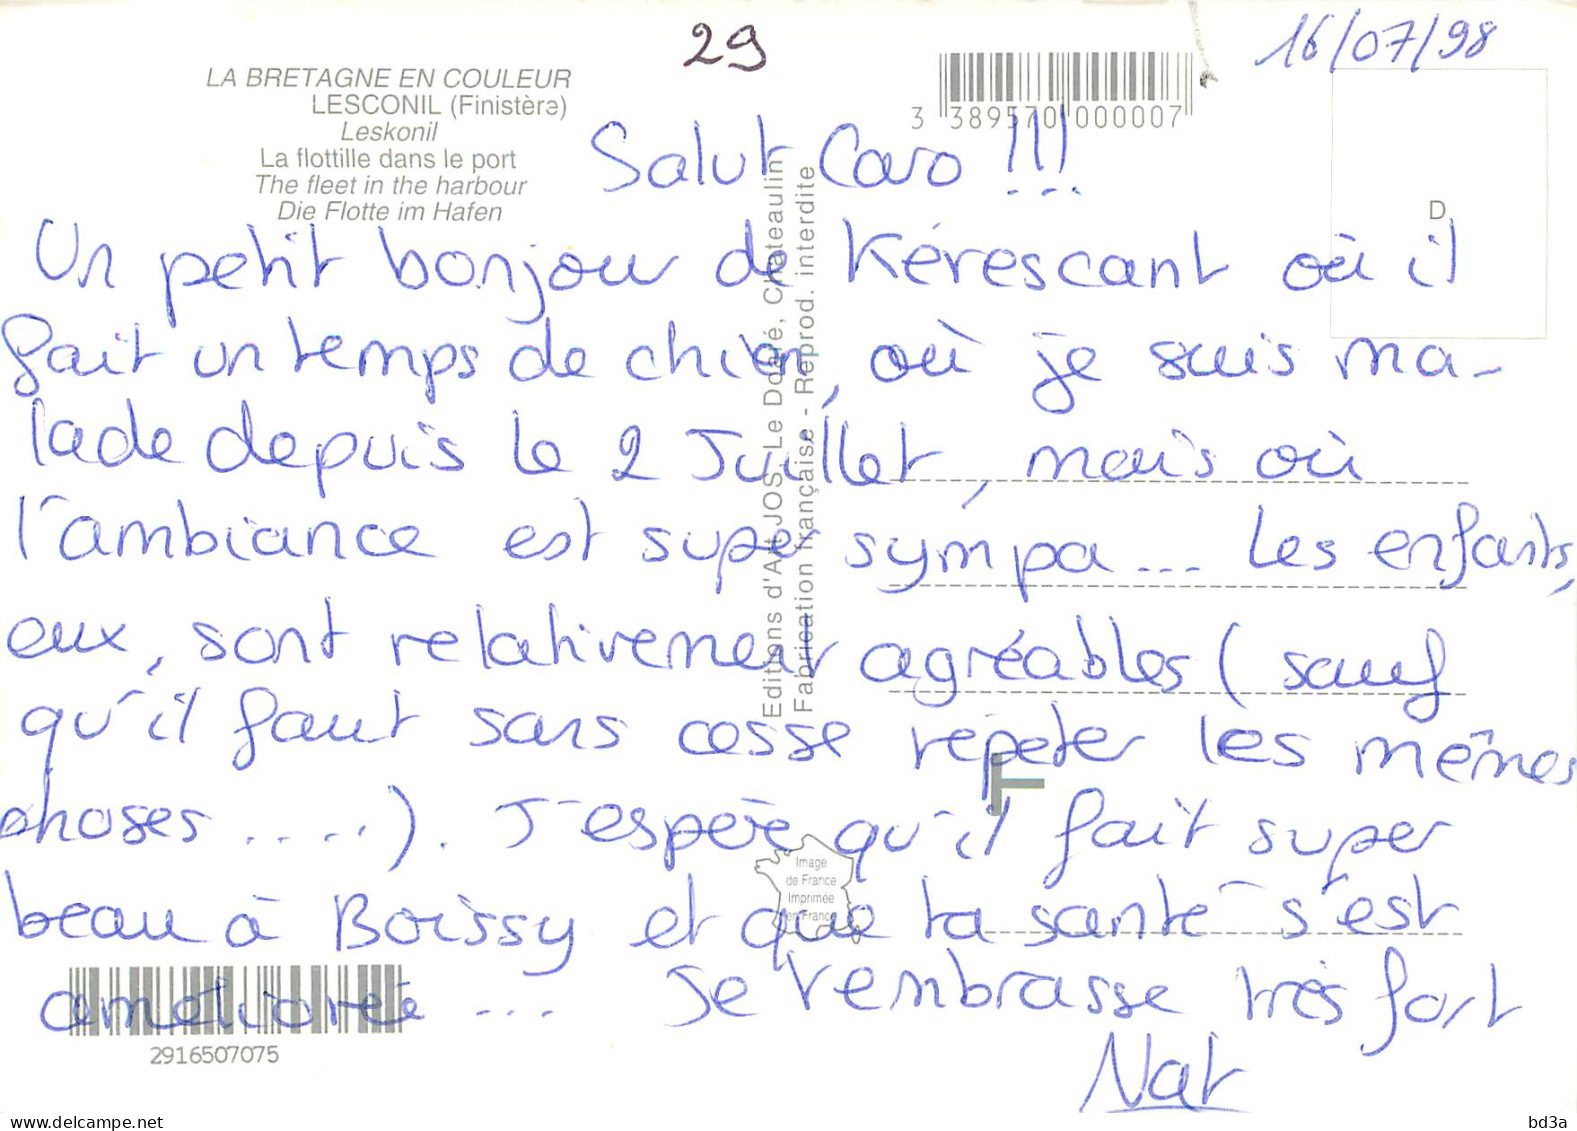 29
16/07/98
LA BRETAGNE EN COULEUR
LESCONIL (Finistère)
Leskonil
La flottille dans le port
The fleet in the harbour
Die Flotte im Hafen
3 389570 000007
D
Salut Caro !!!
Un petit bonjour de Kérescant où il
fait un temps de chien, où je suis ma-
lade depuis le 2 Juillet, mais où
l'ambiance est super sympa... Les enfants,
eux, sont relativement agréables (sauf
qu'il faut sans cesse répéter les mêmes
choses ....). J'espère qu'il fait super
beau à Boissy et que ta santé s'est
améliorée ... Je t'embrasse très fort
Nat
Editions d'Art JOS, Le Doaré, Chateaulin
Fabrication française - Reprod. interdite
Image
de France
Imprimée
en France
2916507075
www.delcampe.net
bd3a